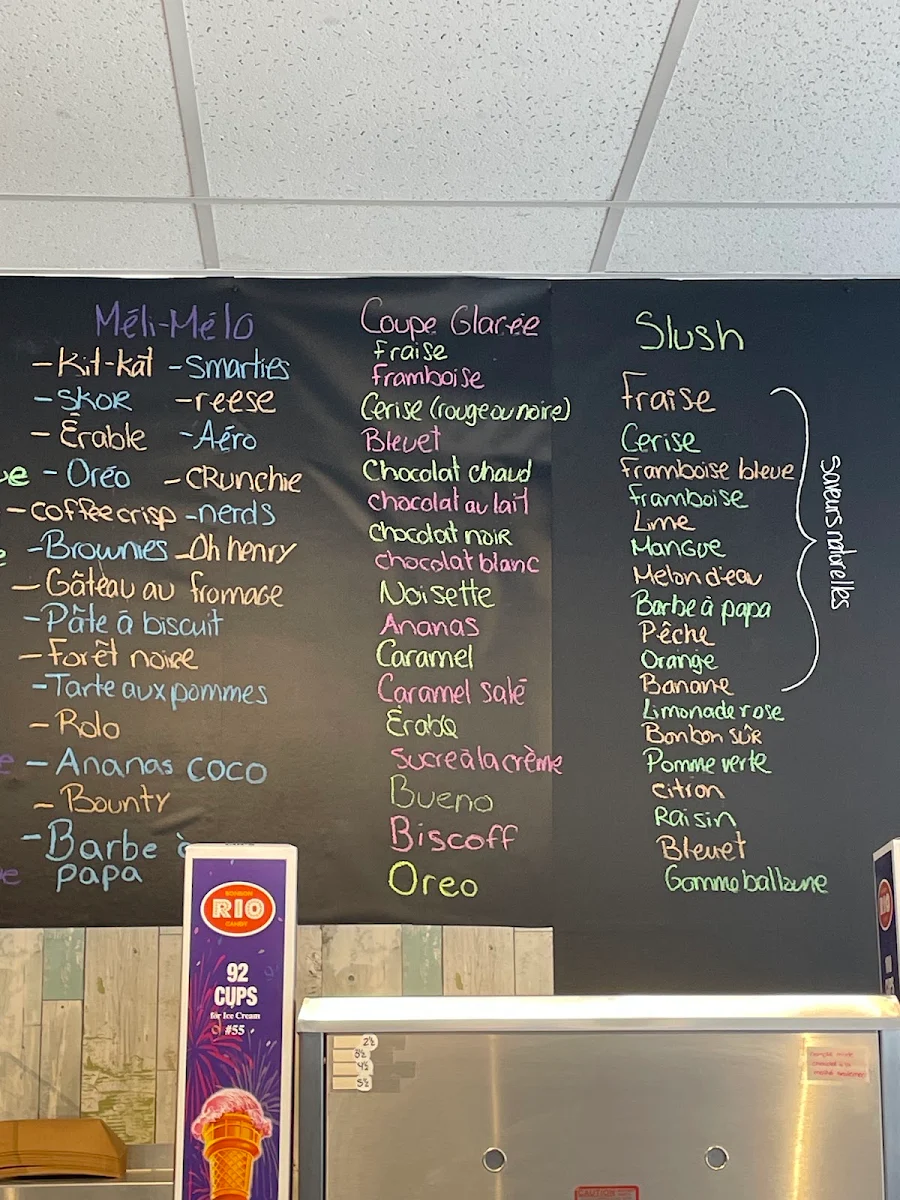 Méli-Mélo
- Kit-kat - Smarties
- Skor - reese
- Érable - Aéro
- Oréo - CRunchie
- coffee crisp - nerds
- Brownies - Oh henry
- Gâteau au fromage
- Pâte à biscuit
- Forêt noire
- Tarte aux pommes
- Rolo
- Ananas coco
- Bounty
- Barbe à
papa
Coupe Glacée
Fraise
Framboise
Cerise (rouge ou noire)
Bleuet
Chocolat chaud
chocolat au lait
chocolat noir
chocolat blanc
Noisette
Ananas
Caramel
Caramel salé
Érable
Sucre à la crème
Bueno
Biscoff
Oreo
Slush
Fraise
Cerise
Framboise bleue
framboise
Lime
Mangue
Melon d'eau
Barbe à papa
Pêche
Orange
Banane
Limonade rose
Bonbon sûr
Pomme verte
citron
Raisin
Bleuet
Gomme balloune
Saveurs naturelles
BONBON
RIO
CANDY
92
CUPS
for Ice Cream
#55
RIO
2½
3½
4½
5½